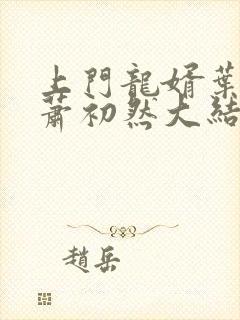 上門龍婿葉
蕭初然大結
趙岳